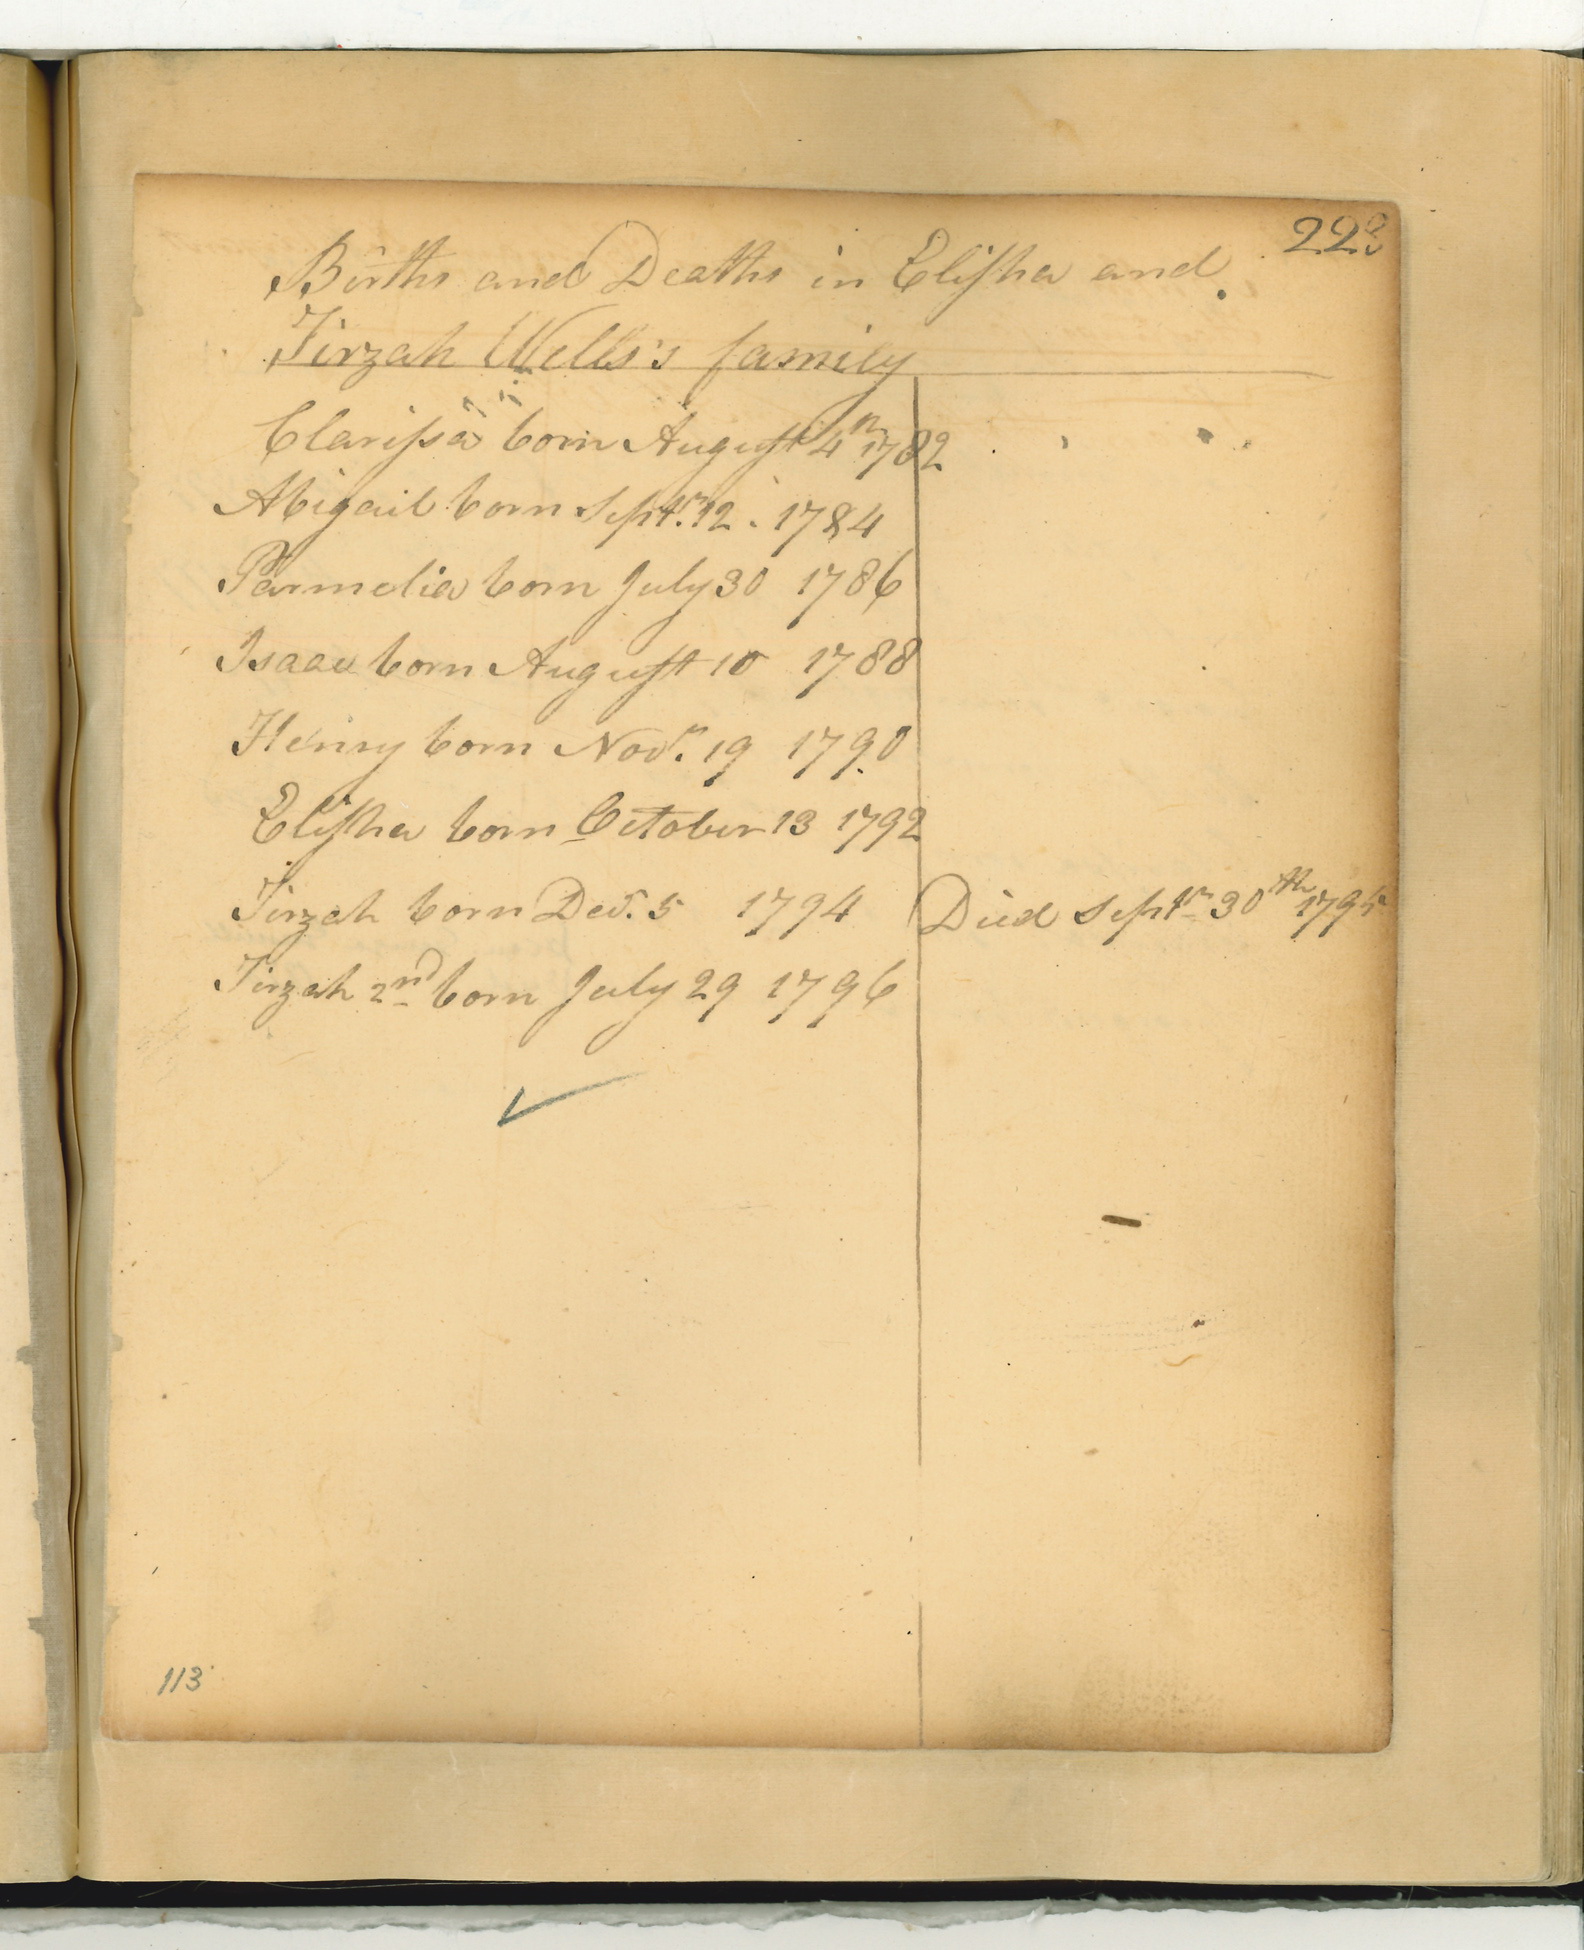 223
Births and Deaths in Elisha and
Tirzah Wells's family
Clarissa born August 4th 1782
Abigail born Septr. 12. 1784
Parmelia born July 30 1786
Isaac born August 10 1788
Henry born Novr. 19 1790
Elisha born October 13 1792
Tirzah born Decr. 5 1794 Died Septr 30th 1795
Tirzah 2nd born July 29 1796
113